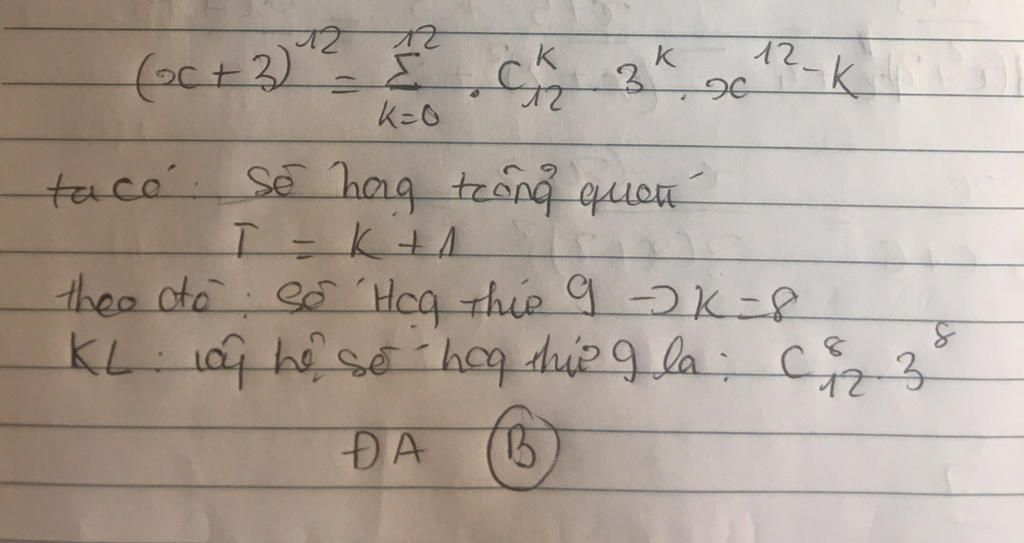 (x+3)^12 = Σ_{k=0}^{12} . C_12^k . 3^k . x^{12-k}
ta có : số hạng tổng quát
T = k + 1
theo đó : số hạng thứ 9 → k = 8
KL : vậy hệ số hạng thứ 9 là : C_12^8 . 3^8
ĐA B